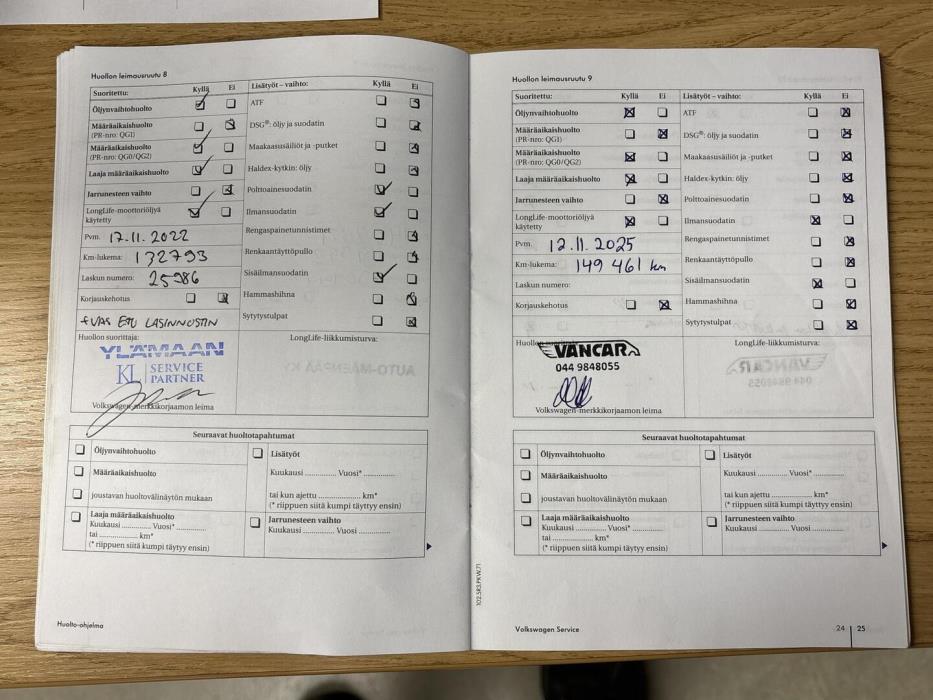 Huollon leimausruutu 8
Suoritettu: Kyllä Ei
Öljynvaihtohuolto
Määräaikaishuolto
(PR-nro: QG1)
Määräaikaishuolto
(PR-nro: QG0/QG2)
Laaja määräaikaishuolto
Jarrunesteen vaihto
LongLife-moottoriöljyä
käytetty
Pvm. 17.11.2022
Km-lukema: 132793
Laskun numero: 25986
Korjauskehotus
ETU LASINNOSTIN
Lisätyöt – vaihto: Kyllä Ei
ATF
DSG®: öljy ja suodatin
Maakaasusäiliöt ja -putket
Haldex-kytkin: öljy
Polttoainesuodatin
Ilmansuodatin
Rengaspainetunnistimet
Renkaantäyttöpullo
Sisäilmansuodatin
Hammashihna
Sytytystulpat
Huollon suorittaja:
YLÄMAAN
KL SERVICE
PARTNER
Volkswagen-merkkikorjaamon leima
LongLife-liikkumisturva:
AUTO-MÄENPÄÄ KY
Seuraavat huoltotapahtumat
Öljynvaihtohuolto
Määräaikaishuolto
joustavan huoltovälinäytön mukaan
Laaja määräaikaishuolto
Kuukausi ............ Vuosi* ............
tai ............ km*
(* riippuen siitä kumpi täytyy ensin)
Lisätyöt
Kuukausi ............ Vuosi* ............
tai kun ajettu ............ km*
(* riippuen siitä kumpi täytyy ensin)
Jarrunesteen vaihto
Kuukausi ............ Vuosi ............
Huolto-ohjelma
102.5R3.PKW.71
Huollon leimausruutu 9
Suoritettu: Kyllä Ei
Öljynvaihtohuolto
Määräaikaishuolto
(PR-nro: QG1)
Määräaikaishuolto
(PR-nro: QG0/QG2)
Laaja määräaikaishuolto
Jarrunesteen vaihto
LongLife-moottoriöljyä
käytetty
Pvm. 12.11.2025
Km-lukema: 149 461 km
Laskun numero:
Korjauskehotus
Lisätyöt – vaihto: Kyllä Ei
ATF
DSG®: öljy ja suodatin
Maakaasusäiliöt ja -putket
Haldex-kytkin: öljy
Polttoainesuodatin
Ilmansuodatin
Rengaspainetunnistimet
Renkaantäyttöpullo
Sisäilmansuodatin
Hammashihna
Sytytystulpat
Huollon
VANCAR
044 9848055
Volkswagen-merkkikorjaamon leima
LongLife-liikkumisturva:
VANCAR
044 9848055
Seuraavat huoltotapahtumat
Öljynvaihtohuolto
Määräaikaishuolto
joustavan huoltovälinäytön mukaan
Laaja määräaikaishuolto
Kuukausi ............ Vuosi* ............
tai ............ km*
(* riippuen siitä kumpi täytyy ensin)
Lisätyöt
Kuukausi ............ Vuosi* ............
tai kun ajettu ............ km*
(* riippuen siitä kumpi täytyy ensin)
Jarrunesteen vaihto
Kuukausi ............ Vuosi ............
Volkswagen Service
24 | 25